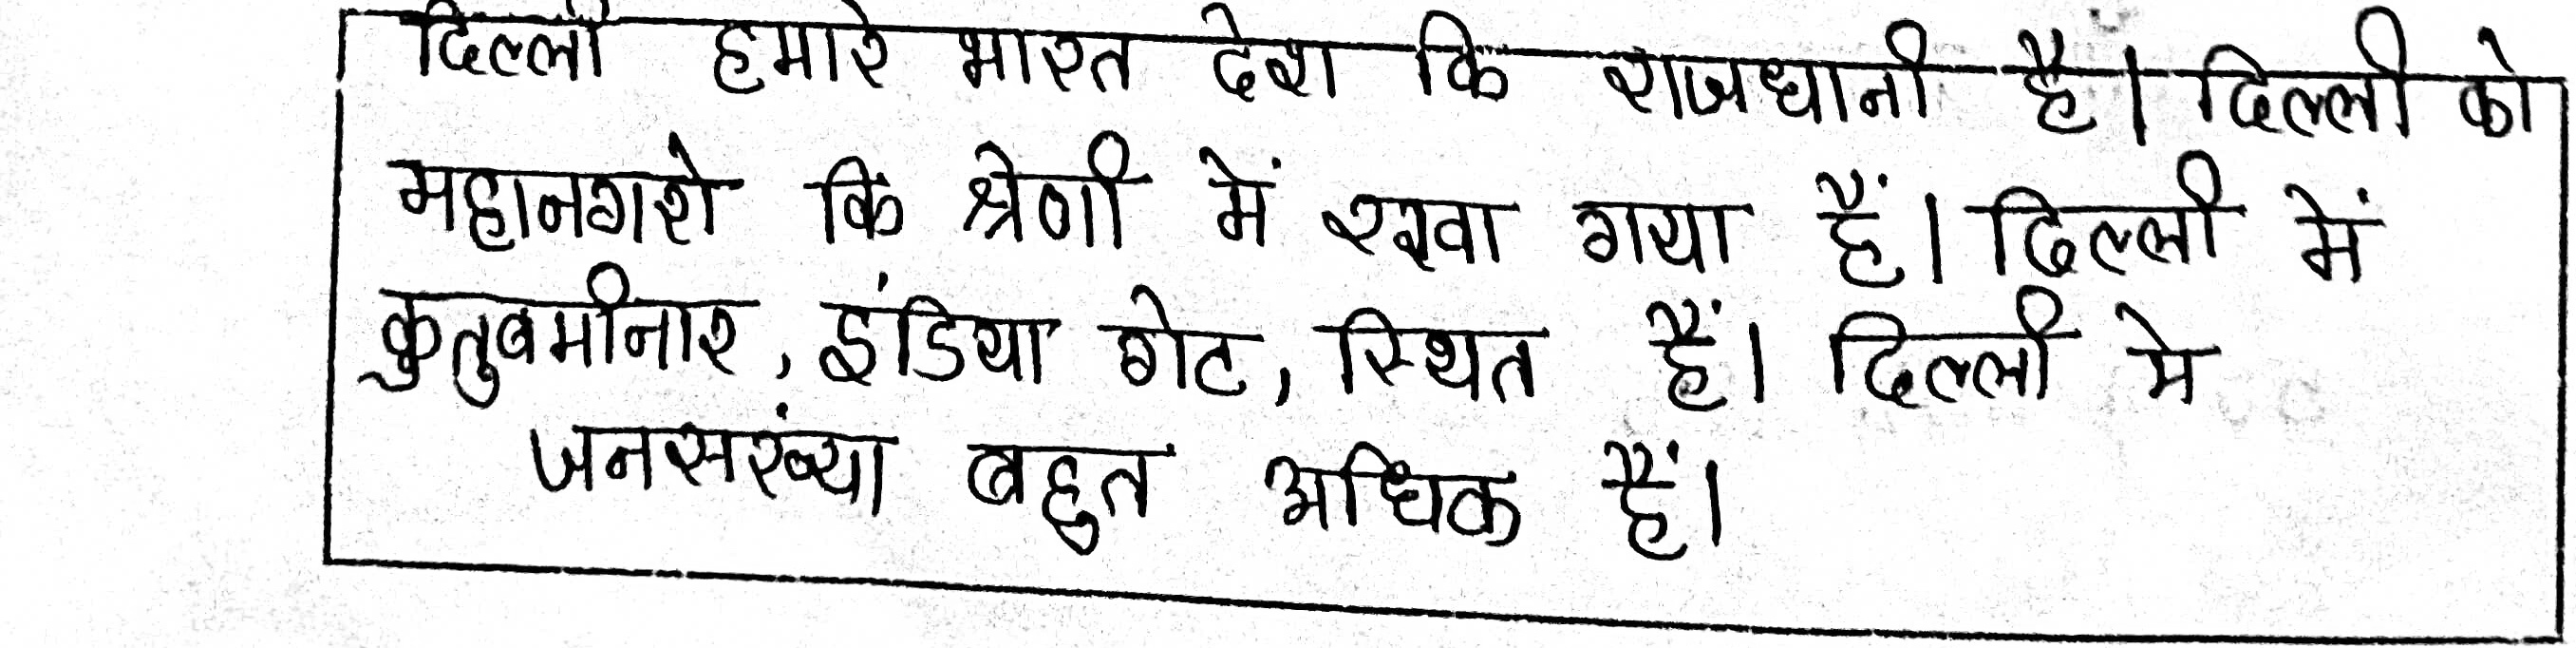 दिल्ली हमारे भारत देश कि राजधानी है। दिल्ली को
महानगरो कि श्रेणी में रखा गया हैं। दिल्ली में
कुतुबमीनार, इंडिया गेट, स्थित हैं। दिल्ली मे
जनसंख्या बहुत अधिक हैं।